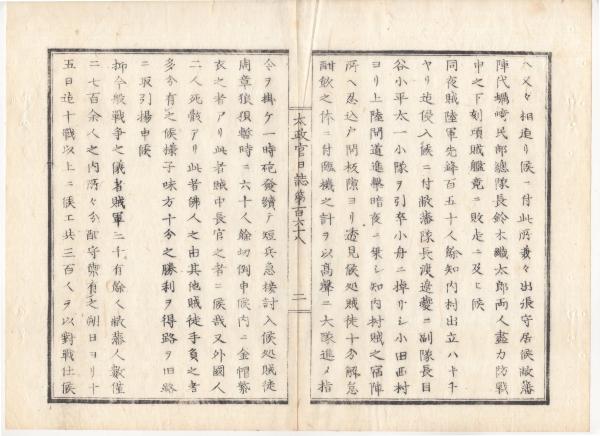 ハ又々相迫リ候ニ付此所兼々出張守居候敝藩
陣代蠣崎民部總隊長鈴木織太郎両人盡力防戰
申之下刻頃賊艦竟ニ敗走ニ及ヒ候
同夜賊陸軍先鋒百五十人餘知内村出立ハヤ千
ヤリ迄侵入候ニ付敝藩隊長渡邉&副隊長目
谷小平太一小隊ヲ引卒小舟ニ掉リシ小田西村
ヨリ上陸間道進擊暗夜ニ乗シ知内村賊之宿陣
所ヘ忍込戸間板隙ヨリ透見候処賊徒十分解怠
酣飲之体ニ付臨機之計ヲ以高聲ニ大隊進メ指
太政官日誌第百六十八
二
令ヲ掛ケ一時砲發續テ短兵急接討入候処賊徒
周章狼狽暫時ニ六十人餘切倒申候内ニ金帽繁
衣之者アリ此者賊中長官之者ニ候哉又外國人
二人死骸アリ此者佛人之由其他賊徒手負之者
多分有之候様子味方十分之勝利ヲ得路ヲ旧路
ニ取引揚申候
抑今般戰争之儀者賊軍二千有餘人敝藩人數僅
ニ七百余人之内所々分配守禦有之朔日ヨリ十
五日迄十戰以上ニ候工共三百人ヲ以對戰仕候